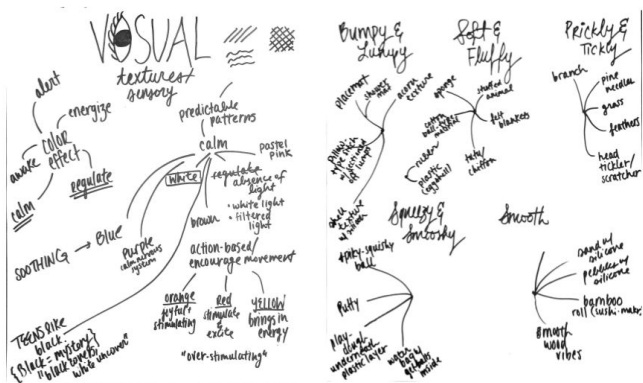 VISUAL
textures/
sensory
alert
energize
COLOR
effect
awake
regulate
calm
predictable
patterns
calm
pastel
pink
White
regulate
absence of
light
• white light
• filtered
light
brown
SOOTHING → Blue
Purple
calm nervous
system
action-based/
encourage movement
orange
joyful +
stimulating
Red
stimulate
& excite
YELLOW
brings in
energy
"over-stimulating"
TEENS like
black
{Black = mystery}
"black covers,
white uncovers"
Bumpy &
Lumpy
placemat
shower
mat
acorn
texture
Soft &
Fluffy
sponge
stuffed
animal
cotton
felt
blankets
tutu/
chiffon
Prickly &
Tickly
branch
pine
needles
grass
feathers
head
tickler/
scratcher
Squeezy &
Smooshy
spiky-squishy
ball
Putty
Play-
dough
underneath
plastic layer
water
bag w/
gel balls
inside
Smooth
sand w/
silicone
pebbles w/
silicone
bamboo
roll (sushi-maker)
smooth
wood
vibes